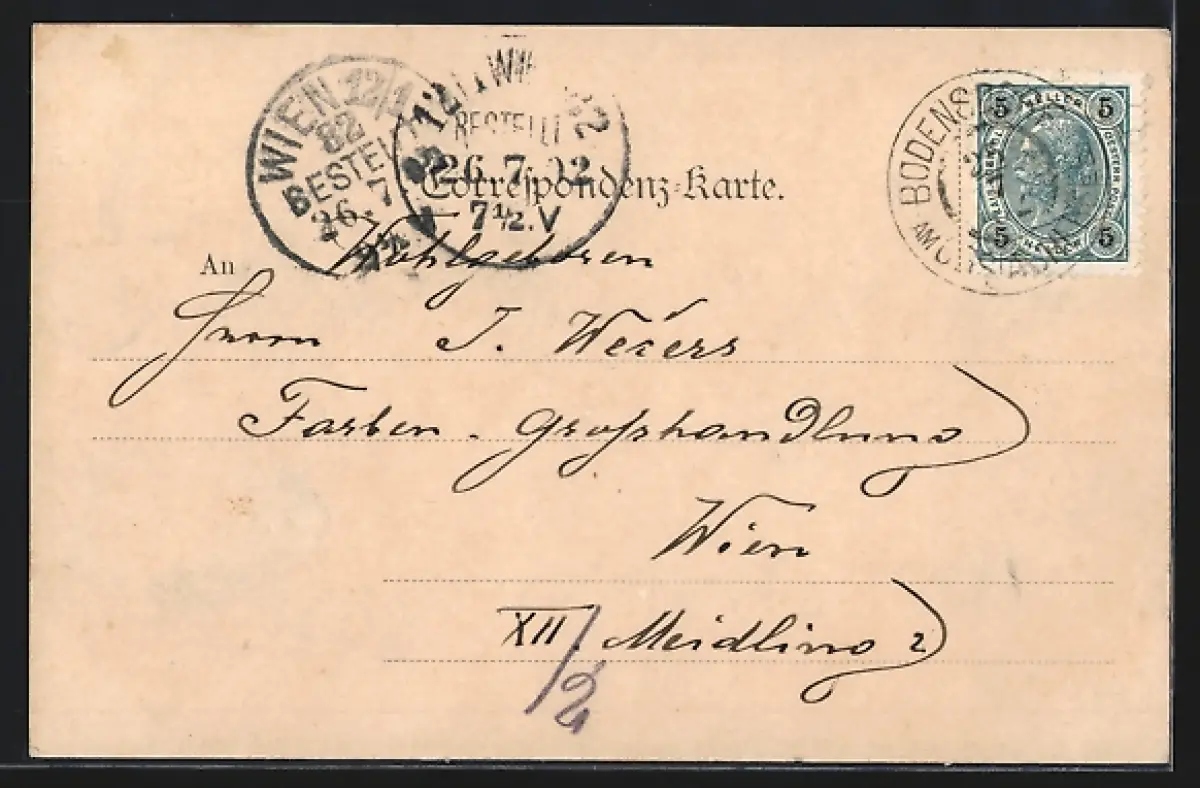 WIEN 12/1
82
BESTELLT
26. 7
12/1 WI 82
BESTELLT
26.7.02
7½.V
BODENS
AM O
5 HELLER 5
5 HELLER 5
Correspondenz-Karte.
An Wohlgeboren
Herrn J.
Farben-Großhandlung
Wien
XII/2 Meidling 2